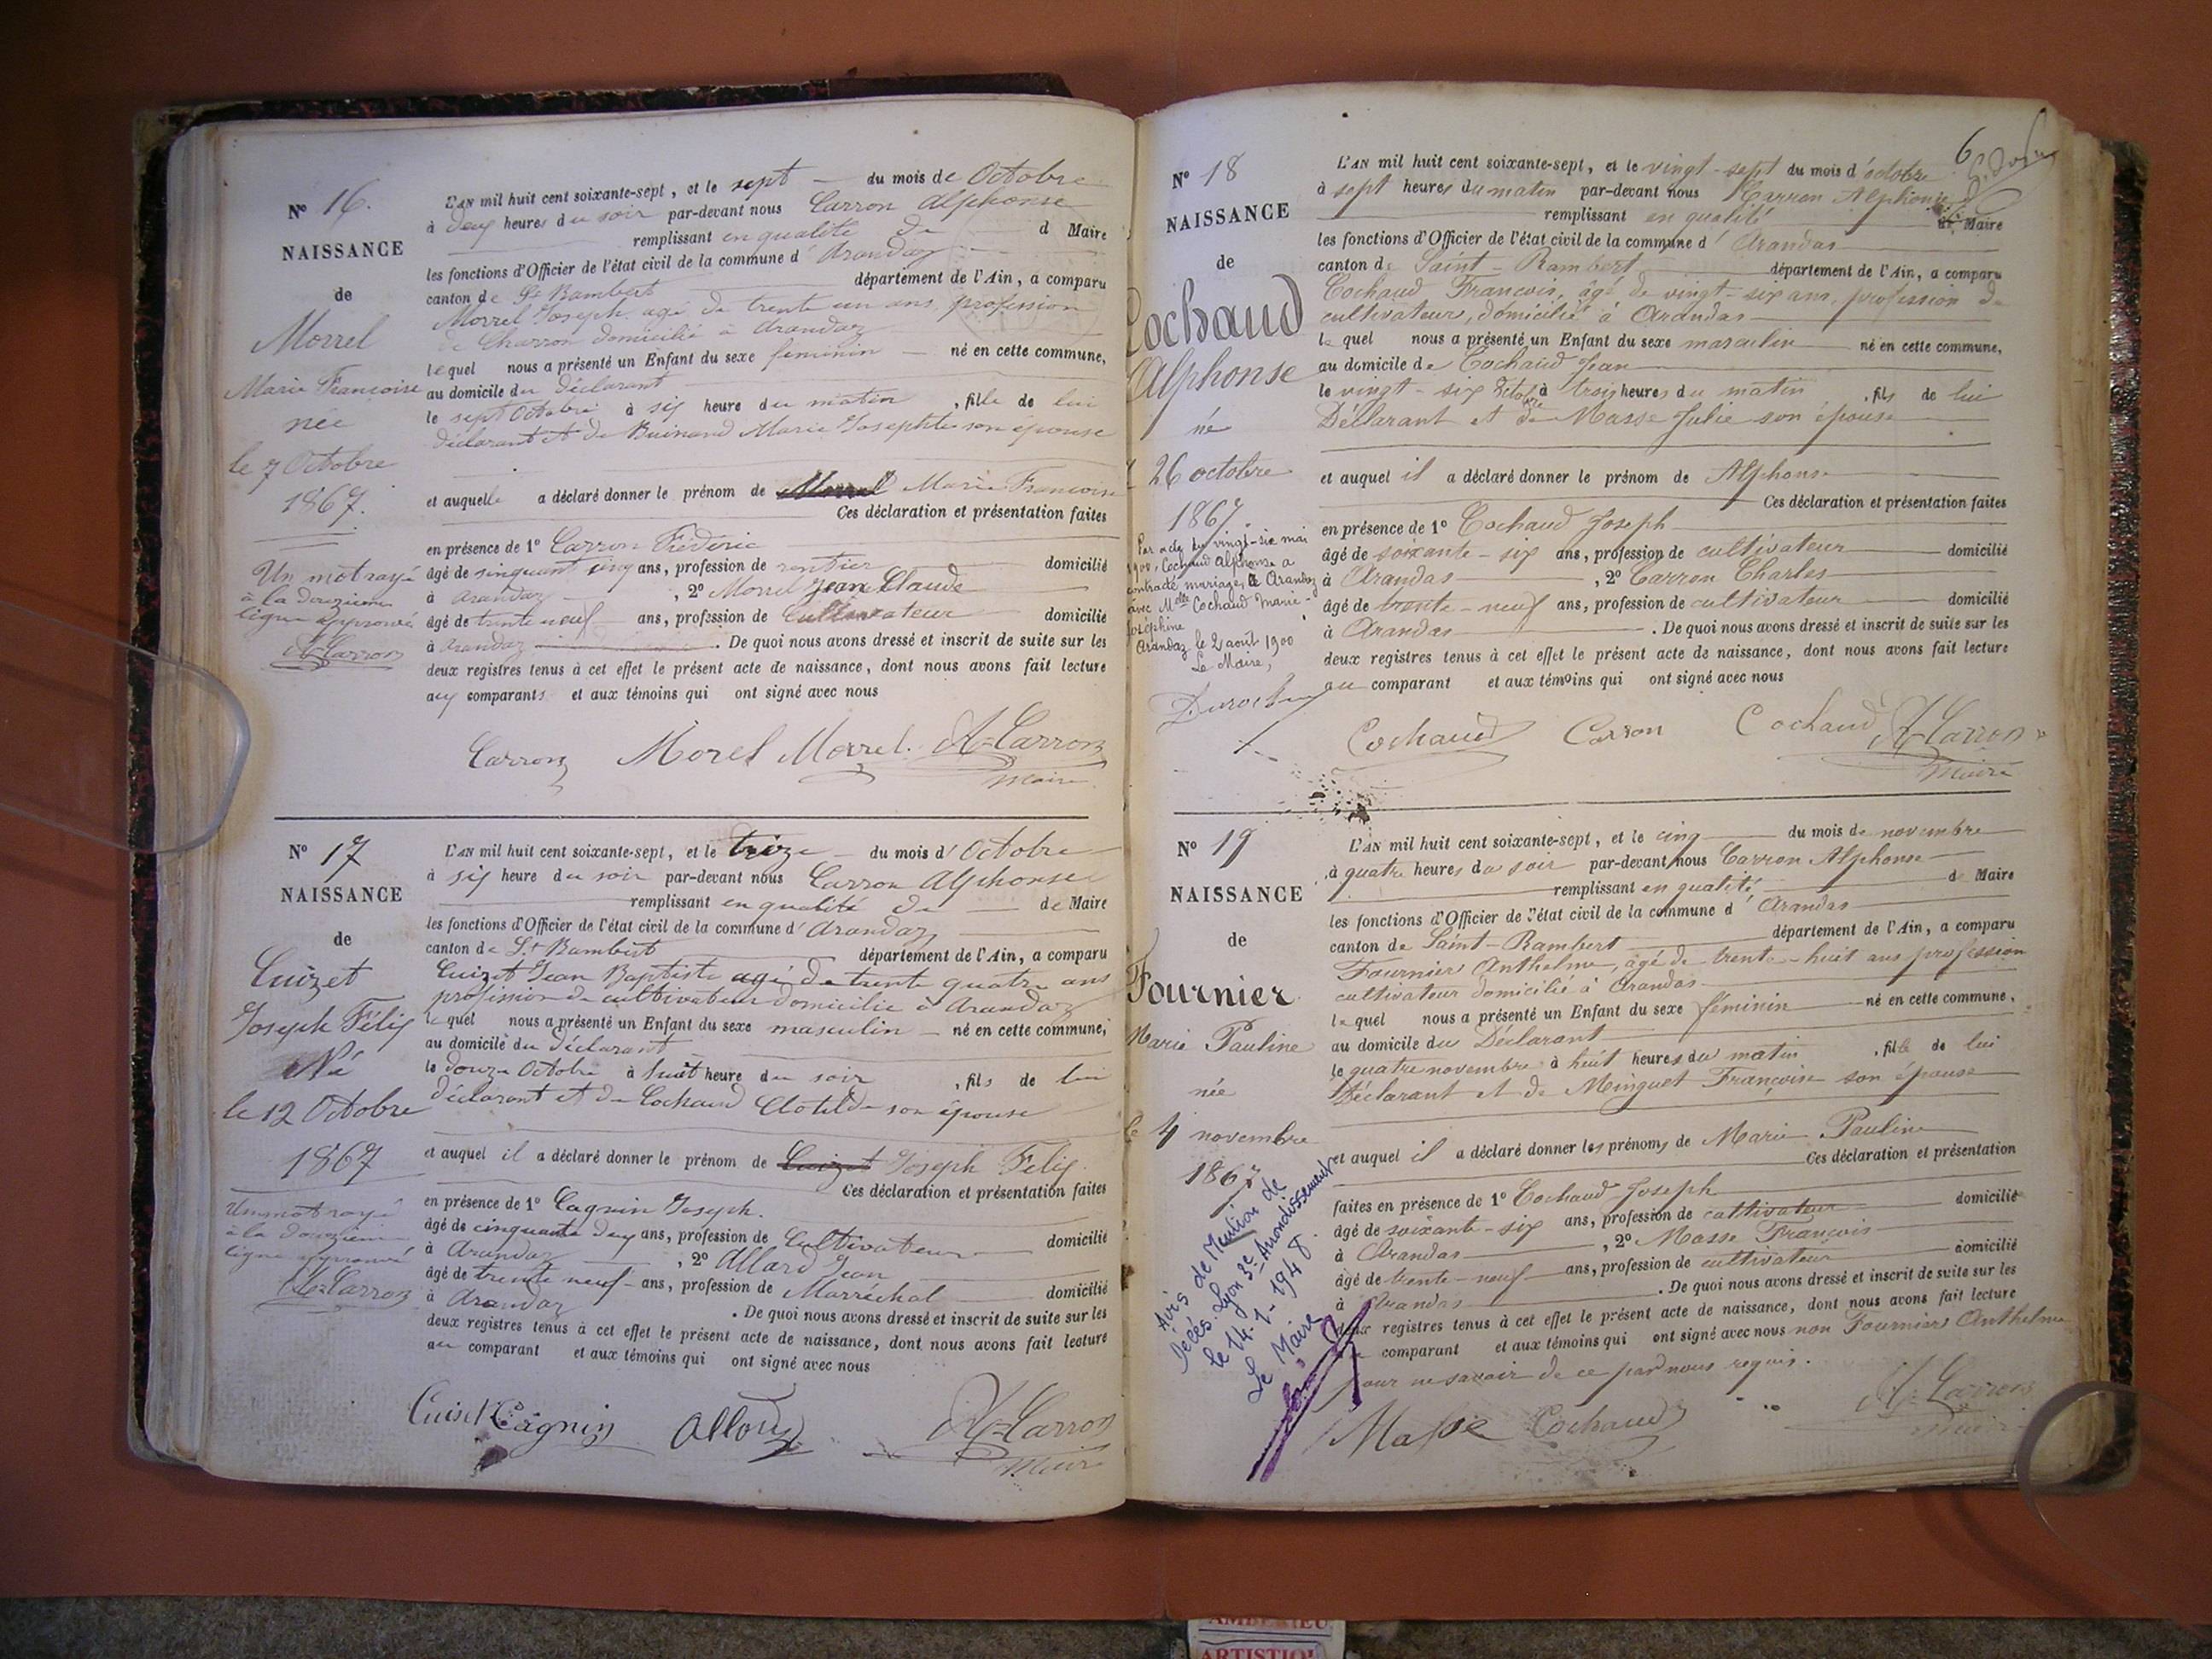 N° 16.
NAISSANCE
de
Morrel
Marie Francoise
née
le 7 Octobre
1867.
Un mot rayé
à la douzieme
ligne approuvé
A. Carron
L'AN mil huit cent soixante-sept, et le sept du mois de Octobre
à deux heures du soir par-devant nous Carron Alphonse
remplissant en qualité de d Maire
les fonctions d'Officier de l'état civil de la commune d'Arandaz
canton de St Rambert département de l'Ain, a comparu
Morrel Joseph agé de trente un ans profession
de Charron domicilié à Arandaz
lequel nous a présenté un Enfant du sexe féminin né en cette commune,
au domicile du déclarant
le sept Octobre à six heure du matin, fille de lui
déclarant et de Buinand Marie Josephte son épouse
et auquelle a déclaré donner le prénom de Morrel Marie Francoise
Ces déclaration et présentation faites
en présence de 1° Carron Fréderic
âgé de sinquant cinq ans, profession de rentier domicilié
à Arandaz, 2° Morrel Jean Claude
âgé de trente neuf ans, profession de Cultivateur domicilié
à Arandaz. De quoi nous avons dressé et inscrit de suite sur les
deux registres tenus à cet effet le présent acte de naissance, dont nous avons fait lecture
aux comparants et aux témoins qui ont signé avec nous
Carron Morel Morrel. A. Carron
Maire
N° 17
NAISSANCE
de
Cuizet
Joseph Félix
Né
le 12 Octobre
1867
Un mot rayé
à la douzieme
ligne approuvé
A. Carron
L'AN mil huit cent soixante-sept, et le treize du mois d'Octobre
à six heure du soir par-devant nous Carron Alphonse
remplissant en qualité de de Maire
les fonctions d'Officier de l'état civil de la commune d'Arandaz
canton de St Rambert département de l'Ain, a comparu
Cuizet Jean Baptiste agé de trente quatre ans
profession de cultivateur domicilié à Arandaz
lequel nous a présenté un Enfant du sexe masculin né en cette commune,
au domicile du déclarant
le douze Octobre à huit heure du soir, fils de lui
déclarant et de Cochaud Clotilde son épouse
et auquel il a déclaré donner le prénom de Cuizet Joseph Felix
Ces déclaration et présentation faites
en présence de 1° Cagnin Joseph.
âgé de cinquante deux ans, profession de Cultivateur domicilié
à Arandaz, 2° Allard Jean
âgé de trente neuf ans, profession de Marréchal domicilié
à Arandaz. De quoi nous avons dressé et inscrit de suite sur les
deux registres tenus à cet effet le présent acte de naissance, dont nous avons fait lecture
au comparant et aux témoins qui ont signé avec nous
Cuiset Cagnin Allard A. Carron
Maire
6
N° 18
NAISSANCE
de
Cochaud
Alphonse
né
26 octobre
1867.
Par acte du vingt-six mai
1900, Cochaud Alphonse a
contracté mariage, à Arandaz
avec Melle Cochaud Marie-
Joséphine
Arandaz, le 2 août 1900
Le Maire,
L'AN mil huit cent soixante-sept, et le vingt-sept du mois d'octobre
à sept heures du matin par-devant nous Carron Alphonse
remplissant en qualité de Maire
les fonctions d'Officier de l'état civil de la commune d'Arandas
canton de Saint-Rambert département de l'Ain, a comparu
Cochaud François, âgé de vingt-six ans, profession de
cultivateur, domicilié à Arandas
lequel nous a présenté un Enfant du sexe masculin né en cette commune,
au domicile de Cochaud Jean
le vingt-six octobre à trois heures du matin, fils de lui
Déclarant et de Masse Julie son épouse
et auquel il a déclaré donner le prénom de Alphonse
Ces déclaration et présentation faites
en présence de 1° Cochaud Joseph
âgé de soixante-six ans, profession de cultivateur domicilié
à Arandas, 2° Carron Charles
âgé de trente-neuf ans, profession de cultivateur domicilié
à Arandas. De quoi nous avons dressé et inscrit de suite sur les
deux registres tenus à cet effet le présent acte de naissance, dont nous avons fait lecture
au comparant et aux témoins qui ont signé avec nous
Cochaud Carron Cochaud A. Carron
Maire
N° 19
NAISSANCE
de
Fournier
Marie Pauline
née
le 4 novembre
1867
Avis de Mention de
Décès. Lyon 3e Arrondissement
le 14-1-1948.
Le Maire
L'AN mil huit cent soixante-sept, et le cinq du mois de novembre
à quatre heures du soir par-devant nous Carron Alphonse
remplissant en qualité de Maire
les fonctions d'Officier de l'état civil de la commune d'Arandas
canton de Saint-Rambert département de l'Ain, a comparu
Fournier Anthelme, âgé de trente-huit ans profession
cultivateur domicilié à Arandas
lequel nous a présenté un Enfant du sexe féminin né en cette commune,
au domicile du Déclarant
le quatre novembre à huit heures du matin, fille de lui
Déclarant et de Minguet Françoise son épouse
et auquel il a déclaré donner les prénoms de Marie Pauline
Ces déclaration et présentation
faites en présence de 1° Cochaud Joseph
âgé de soixante-six ans, profession de cultivateur domicilié
à Arandas, 2° Masse François
âgé de trente-neuf ans, profession de cultivateur domicilié
à Arandas. De quoi nous avons dressé et inscrit de suite sur les
deux registres tenus à cet effet le présent acte de naissance, dont nous avons fait lecture
comparant et aux témoins qui ont signé avec nous non Fournier Anthelme
pour ne savoir de ce par nous requis.
Masse Cochaud A. Carron
Maire
AMBERIEU
ARTISTIQU